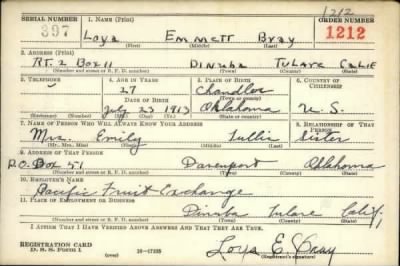 1212
SERIAL NUMBER 1. NAME (Print) ORDER NUMBER
397 Loya Emmett Bray 1212
(First) (Middle) (Last)
2. ADDRESS (Print)
RT. 2 Box 11 Dinuba Tulare Calif
(Number and street or R. F. D. number) (Town) (County) (State)
3. TELEPHONE 4. AGE IN YEARS 5. PLACE OF BIRTH 6. COUNTRY OF CITIZENSHIP
27 Chandler
DATE OF BIRTH (Town or county)
July 23 1913 Oklahoma U. S.
(Exchange) (Number) (Mo.) (Day) (Yr.) (State or country)
7. NAME OF PERSON WHO WILL ALWAYS KNOW YOUR ADDRESS 8. RELATIONSHIP OF THAT PERSON
Mrs. Emily Sister
(Mr., Mrs., Miss) (First) (Middle) (Last)
9. ADDRESS OF THAT PERSON
P.O. Box 51 Davenport Oklahoma
(Number and street or R. F. D. number) (Town) (County) (State)
10. EMPLOYER'S NAME
Pacific Fruit Exchange
11. PLACE OF EMPLOYMENT OR BUSINESS
Dinuba Tulare Calif.
(Number and street or R. F. D. number) (Town) (County) (State)
I AFFIRM THAT I HAVE VERIFIED ABOVE ANSWERS AND THAT THEY ARE TRUE.
REGISTRATION CARD
D. S. S. Form 1 16-17105 Loya E. Bray
(Registrant's signature)